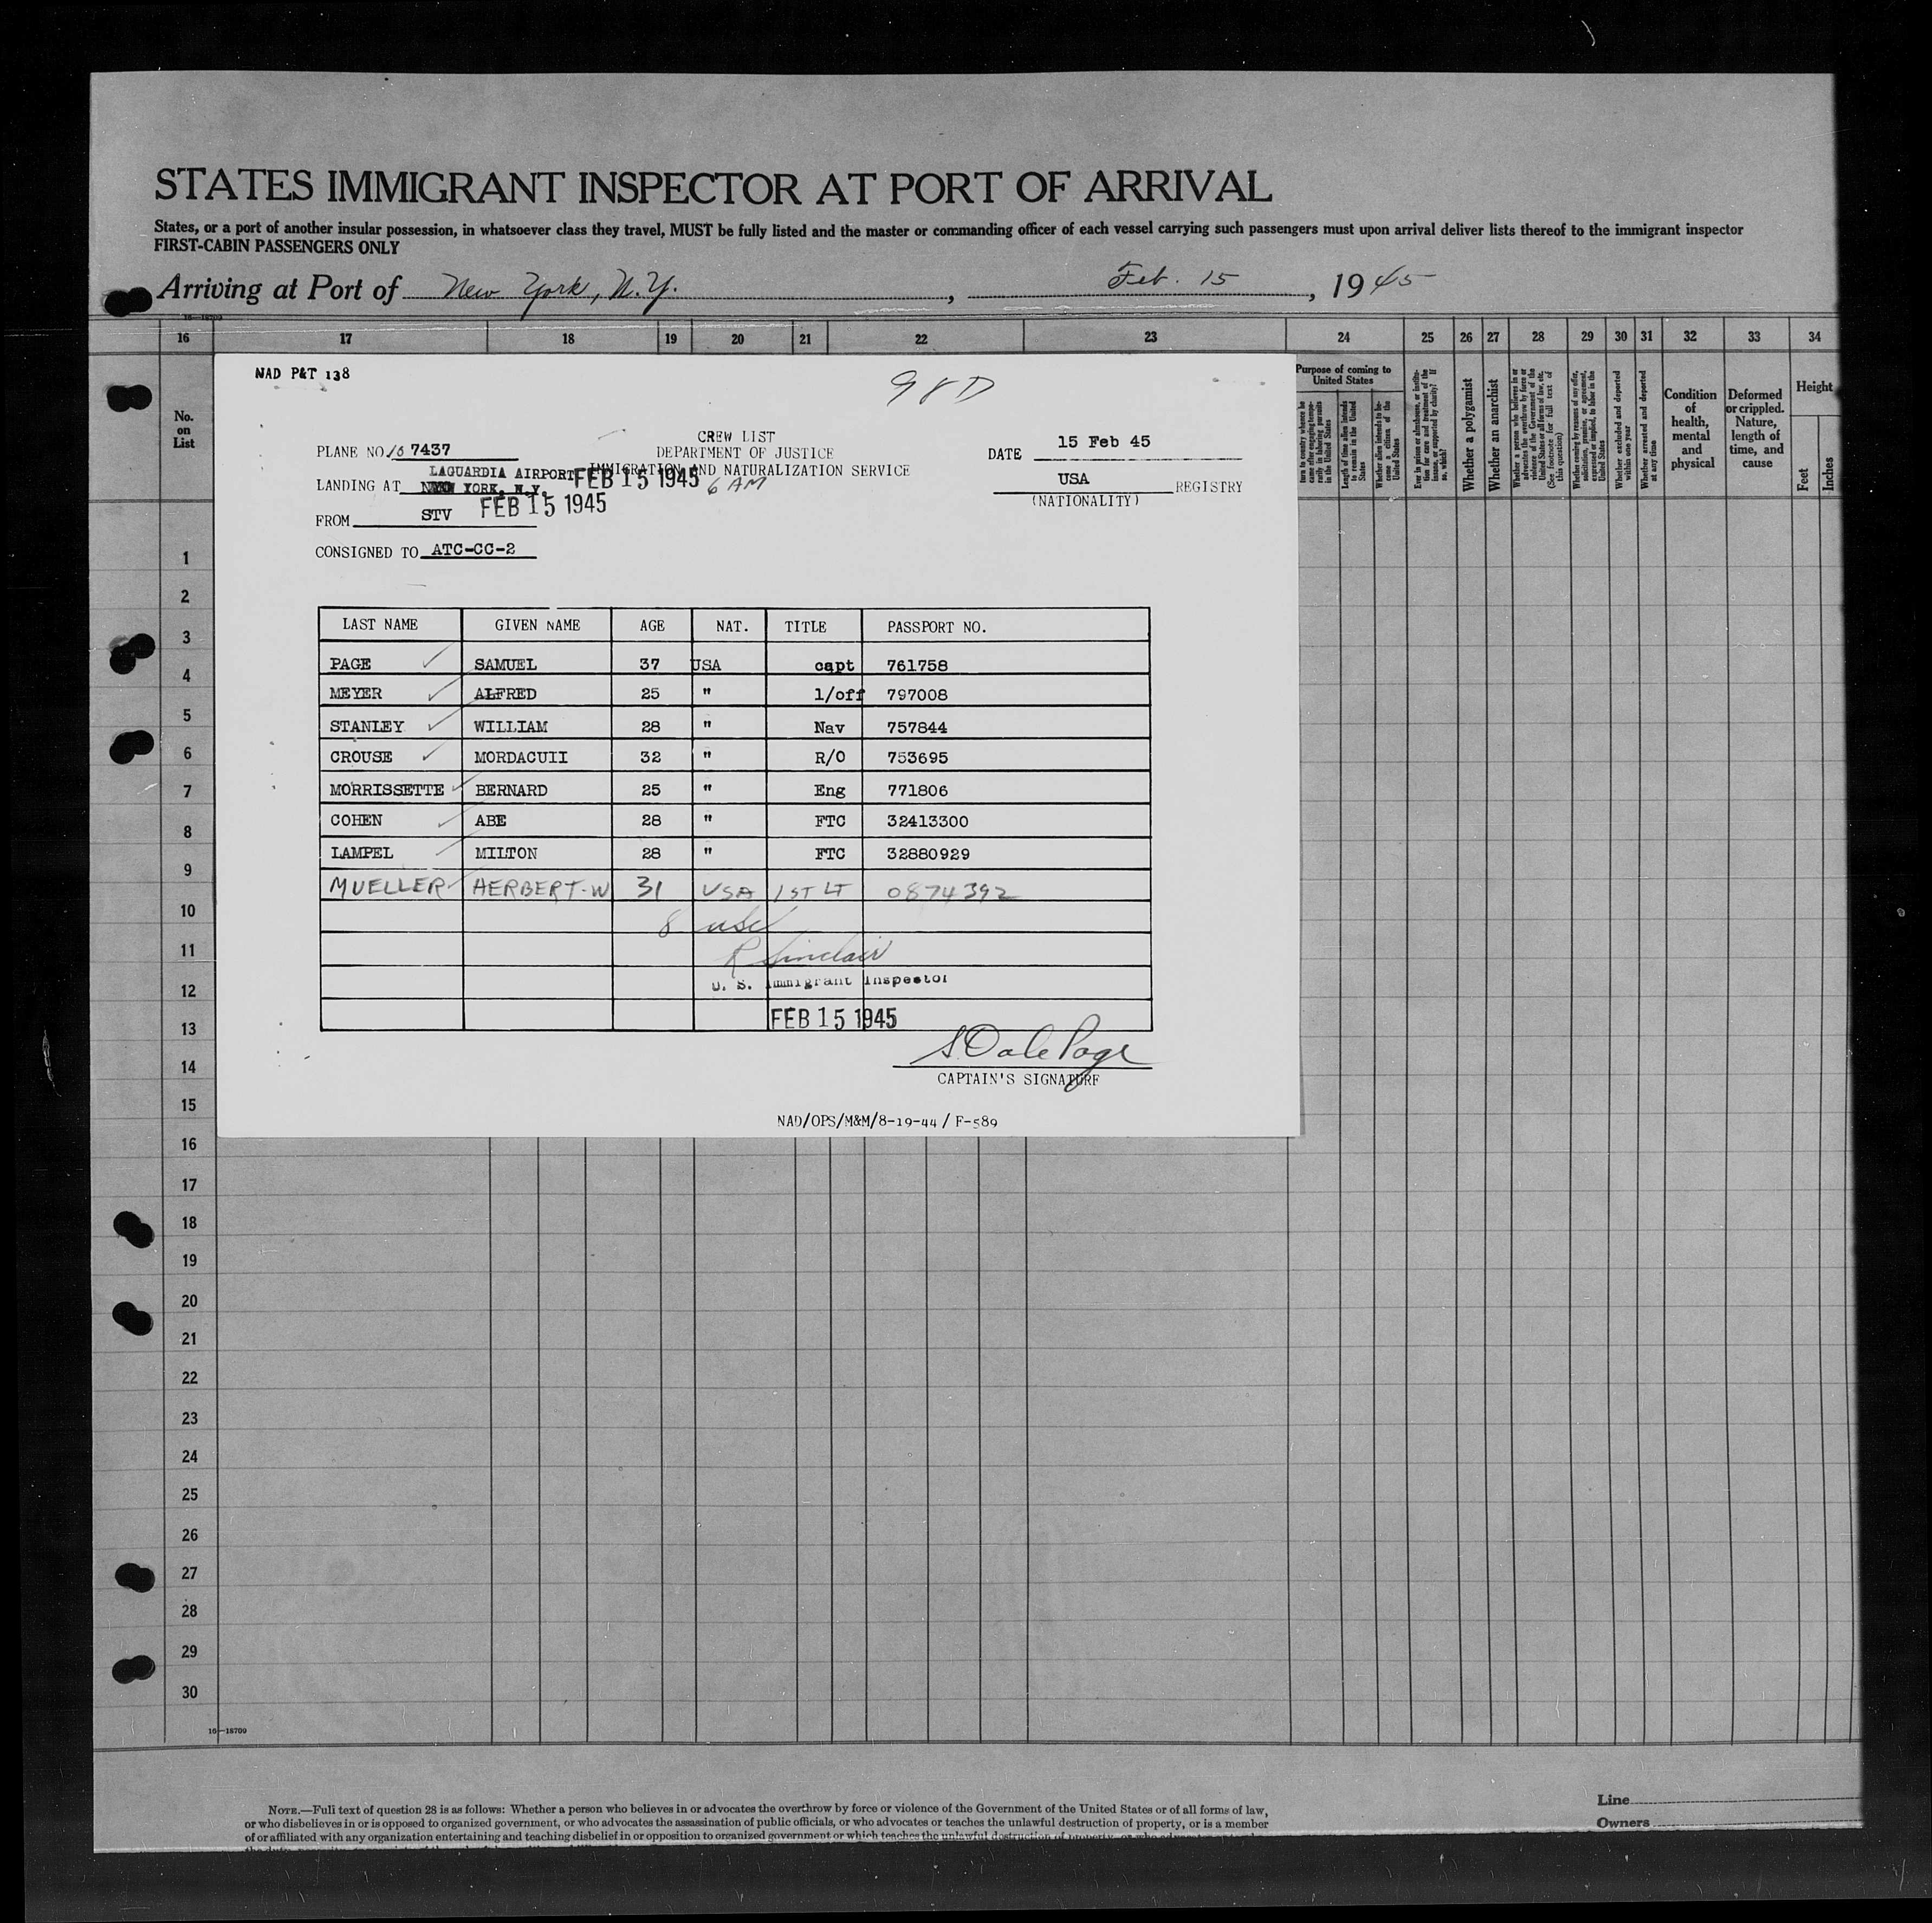 STATES IMMIGRANT INSPECTOR AT PORT OF ARRIVAL
States, or a port of another insular possession, in whatsoever class they travel, MUST be fully listed and the master or commanding officer of each vessel carrying such passengers must upon arrival deliver lists thereof to the immigrant inspector
FIRST-CABIN PASSENGERS ONLY
Arriving at Port of New York, N.Y., Feb. 15, 1945
16 17 18 19 20 21 22 23 24 25 26 27 28 29 30 31 32 33 34
No. on List
Purpose of coming to United States
Length of time alien intends to remain in the United States
Whether a polygamist
Whether an anarchist
(See footnote for full text of this question)
Whether excluded and deported within one year
Whether arrested and deported at any time
Condition of health, mental and physical
Deformed or crippled. Nature, length of time, and cause
Height
Feet
Inches
NAD P&T 138
98D
CREW LIST
DEPARTMENT OF JUSTICE
IMMIGRATION AND NATURALIZATION SERVICE
PLANE NO 10 7437
DATE 15 Feb 45
LAGUARDIA AIRPORT FEB 15 1945 6 AM
LANDING AT NEW YORK, N.Y.
USA REGISTRY
(NATIONALITY)
FROM STV FEB 15 1945
CONSIGNED TO ATC-CC-2
LAST NAME GIVEN NAME AGE NAT. TITLE PASSPORT NO.
PAGE SAMUEL 37 USA capt 761758
MEYER ALFRED 25 " 1/off 797008
STANLEY WILLIAM 28 " Nav 757844
CROUSE MORDACUII 32 " R/O 753695
MORRISSETTE BERNARD 25 " Eng 771806
COHEN ABE 28 " FTC 32413300
LAMPEL MILTON 28 " FTC 32880929
MUELLER HERBERT-W 31 USA 1ST LT 0874392
8 usc
R Sinclair
U. S. Immigrant Inspector
FEB 15 1945
S. Dale Page
CAPTAIN'S SIGNATURE
NAD/OPS/M&M/8-19-44/ F-589
1
2
3
4
5
6
7
8
9
10
11
12
13
14
15
16
17
18
19
20
21
22
23
24
25
26
27
28
29
30
16—18709
NOTE.—Full text of question 28 is as follows: Whether a person who believes in or advocates the overthrow by force or violence of the Government of the United States or of all forms of law,
or who disbelieves in or is opposed to organized government, or who advocates the assassination of public officials, or who advocates or teaches the unlawful destruction of property, or is a member
of or affiliated with any organization entertaining and teaching disbelief in or opposition to organized government or which teaches the unlawful destruction of property
Line
Owners